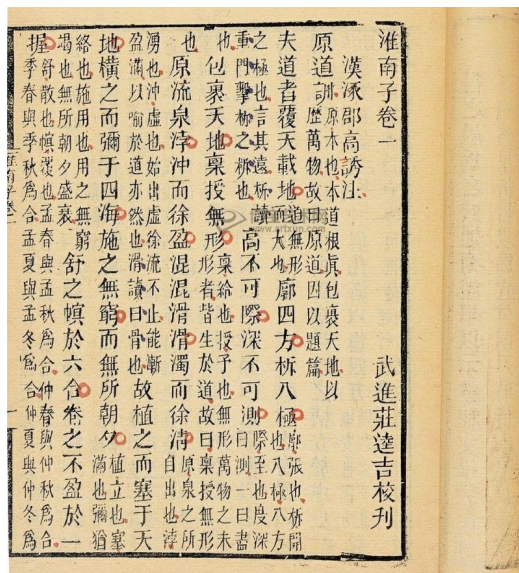 淮南子卷一 武進莊逵吉校刊
漢涿郡高誘注
原道訓 訓原本也本道根真包裹天地以
歷萬物故曰原道因以題篇
夫道者覆天載地 道無形
而大也 廓四方柝八極 廓張也柝開
也八極八方
之極也言其遠柝讀
重門擊柝之柝也 高不可際深不可測 際至也度深
曰測一曰盡
也 包裹天地稟授無形 稟給也授予也無形萬物之未
形者皆生於道故曰稟授無形
也 原流泉浡沖而徐盈混混滑滑濁而徐清 原泉之所
自出也浡
湧也沖虛也始出虛徐流不止能漸
盈滿以喻於道亦然也滑讀曰骨也 故植之而塞于天
地橫之而彌于四海施之無窮而無所朝夕 植立也塞
滿也彌猶
絡也施用也用之無窮
竭也無所朝夕盛衰 舒之幎於六合卷之不盈於一
握 舒散也幎覆也孟春與孟秋為合仲春與仲秋為合
季春與季秋為合孟夏與孟冬為合仲夏與仲冬為
淮南子卷一
一
www.artxun.com